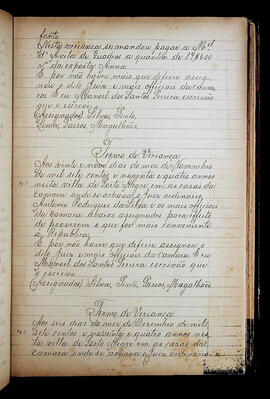 fonte
Nesta veriança se mandou pagar a Mel
Avila de Quadros a quantia de 1$600
rs da exposta Anna
E por não haver mais que deferir assig-
nou o dito Juiz e mais officiaes da Cama-
ra E eu Manoel dos Santos Pereira escrivão
que o escrevi
(Assignados) Silva, Pinto,
Lima, Passos, Magalhães
Termo de Veriança
Aos vinte e nove dias do mez de Novembro
de mil sete centos e noventa e quatro annos
nesta villa de Porto Alegre em as casas da
Camara onde se achava o Juiz ordinario
Antonio Rodrigues da Silva e os mais officiaes
da Camara abaixo assignados para effeito
de proverem o que for mais conveniente
a Republica,
E por não haver que deferir assignou o
dito Juiz e mais officiaes da Camara E eu
Manoel dos Santos Pereira escrivão que
o escrevi
(Assignados) Silva, Pinto, Passos, Magalhães
Termo de Veriança
Aos seis dias do mez de Dezembro de mil
sete centos e noventa e quatro annos nes-
ta villa de Porto Alegre em as casas da
Camara onde se achava o Juiz ordinario